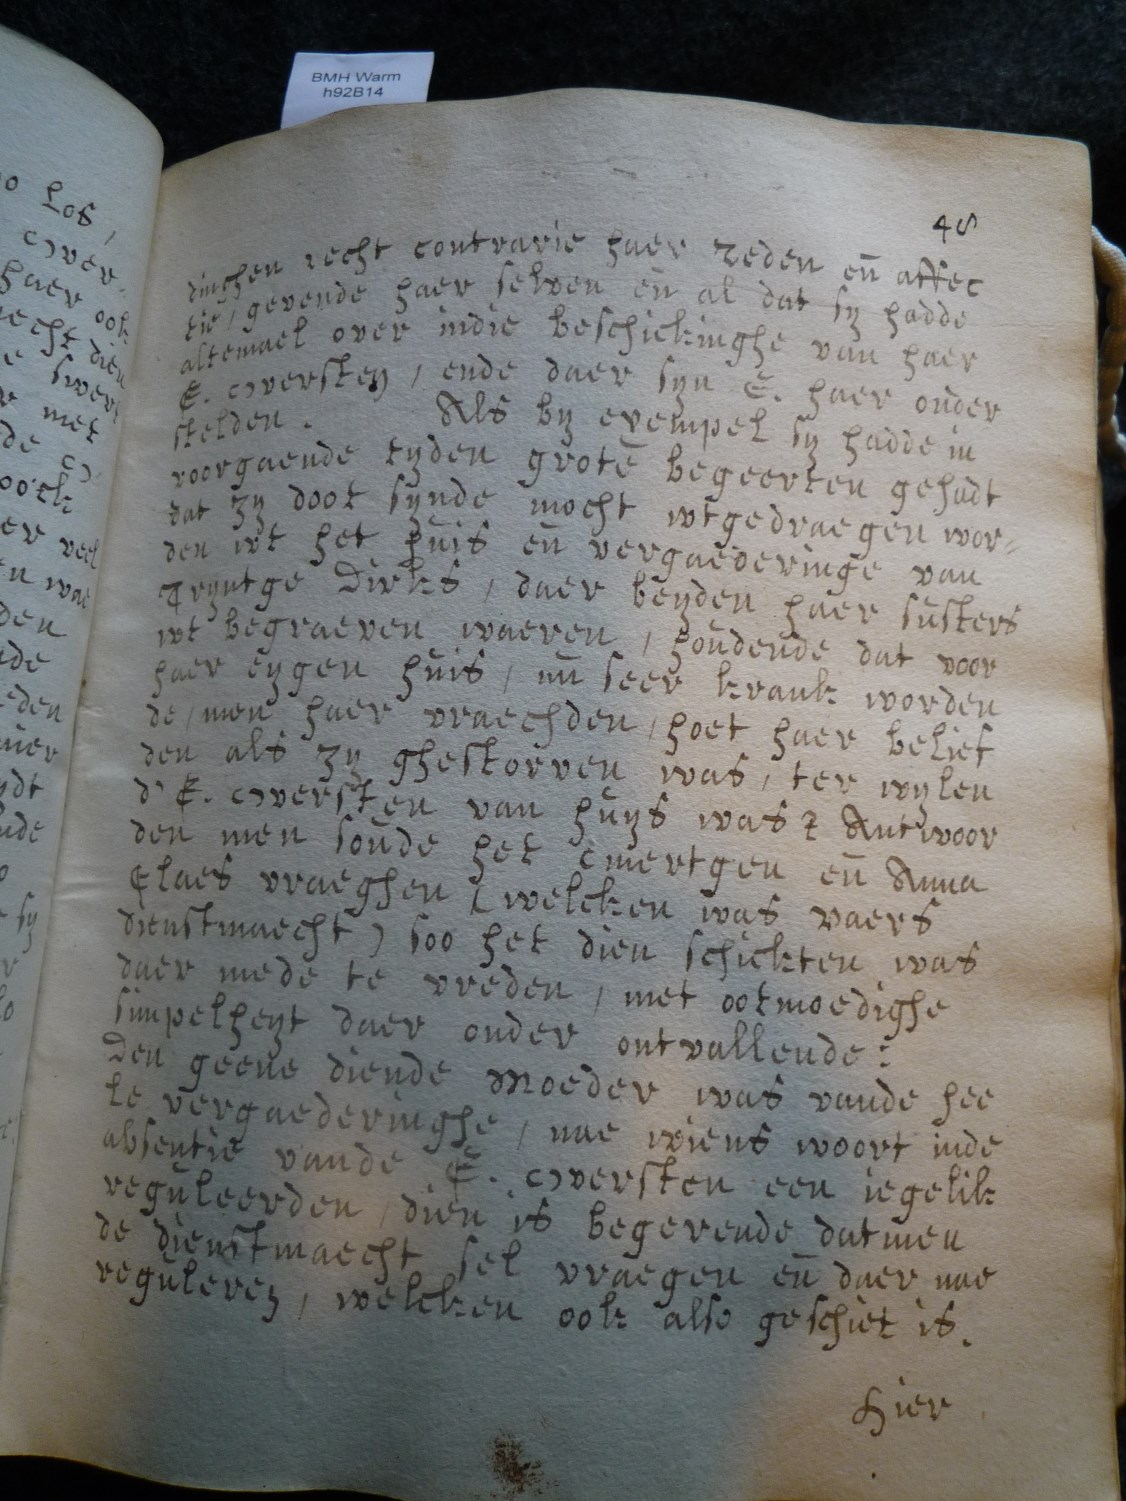 BMH Warm
h92B14
48
dinghen recht contrarie haer reden en̄ affec
tie, gevende haer selven en̄ al dat sy hadde
altemael over indie beschickinghe van haer
E. Oversten, ende daer syn E. haer onder
stelden. Als by exempel sy hadde in
voorgaende tyden grote begeerten gehadt
dat zy doot synde mocht wtgedraegen wor-
den wt het huis en̄ vergaederinge van
Tryntge Dirks, daer beyden haer susters
wt begraeven waeren, houdende dat voor
haer eygen huis, nu seer krank worden
de, men haer vraechden, hoet haer belief
den als zy ghestorven was, ter wylen
d' E. Oversten van huys was? Antwoor
den men soude het Emertgen en̄ Anna
Claes vraeghen (welcken was vaers
dienstmaecht) soo het dien schickten was
daer mede te vreden, met ootmoedighe
simpelheyt daer onder ontvallende:
Den geene diende Moeder was vande hee
le vergaederinghe, nae wiens woort inde
absentie vande E. Oversten een iegelik
reguleerden, dien is begerende datmen
de dienstmaecht sel vraegen en̄ daer nae
reguleren, welcken ook also geschiet is.
Hier
oo los,
Over-
haer ook
recht dien
met
oock
veel
den